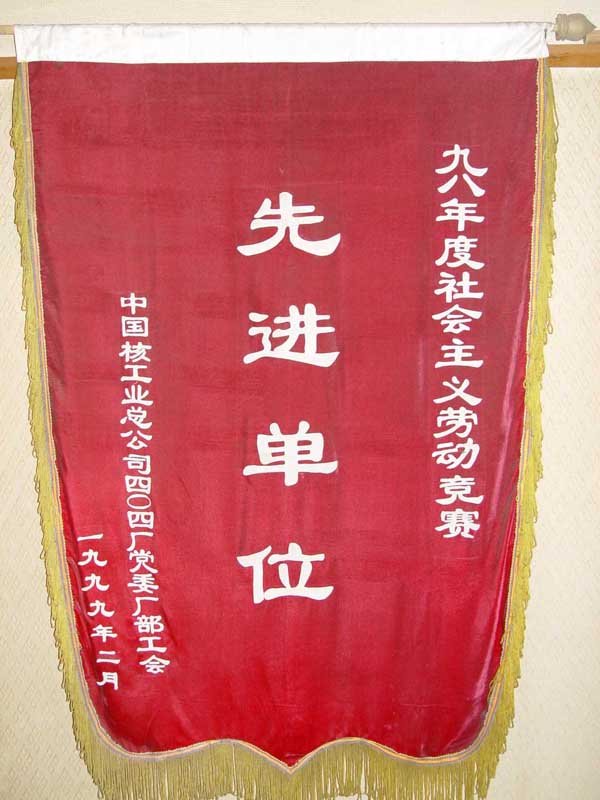 九八年度社会主义劳动竞赛
先进单位
中国核工业总公司四〇四厂党委厂部工会
一九九九年二月